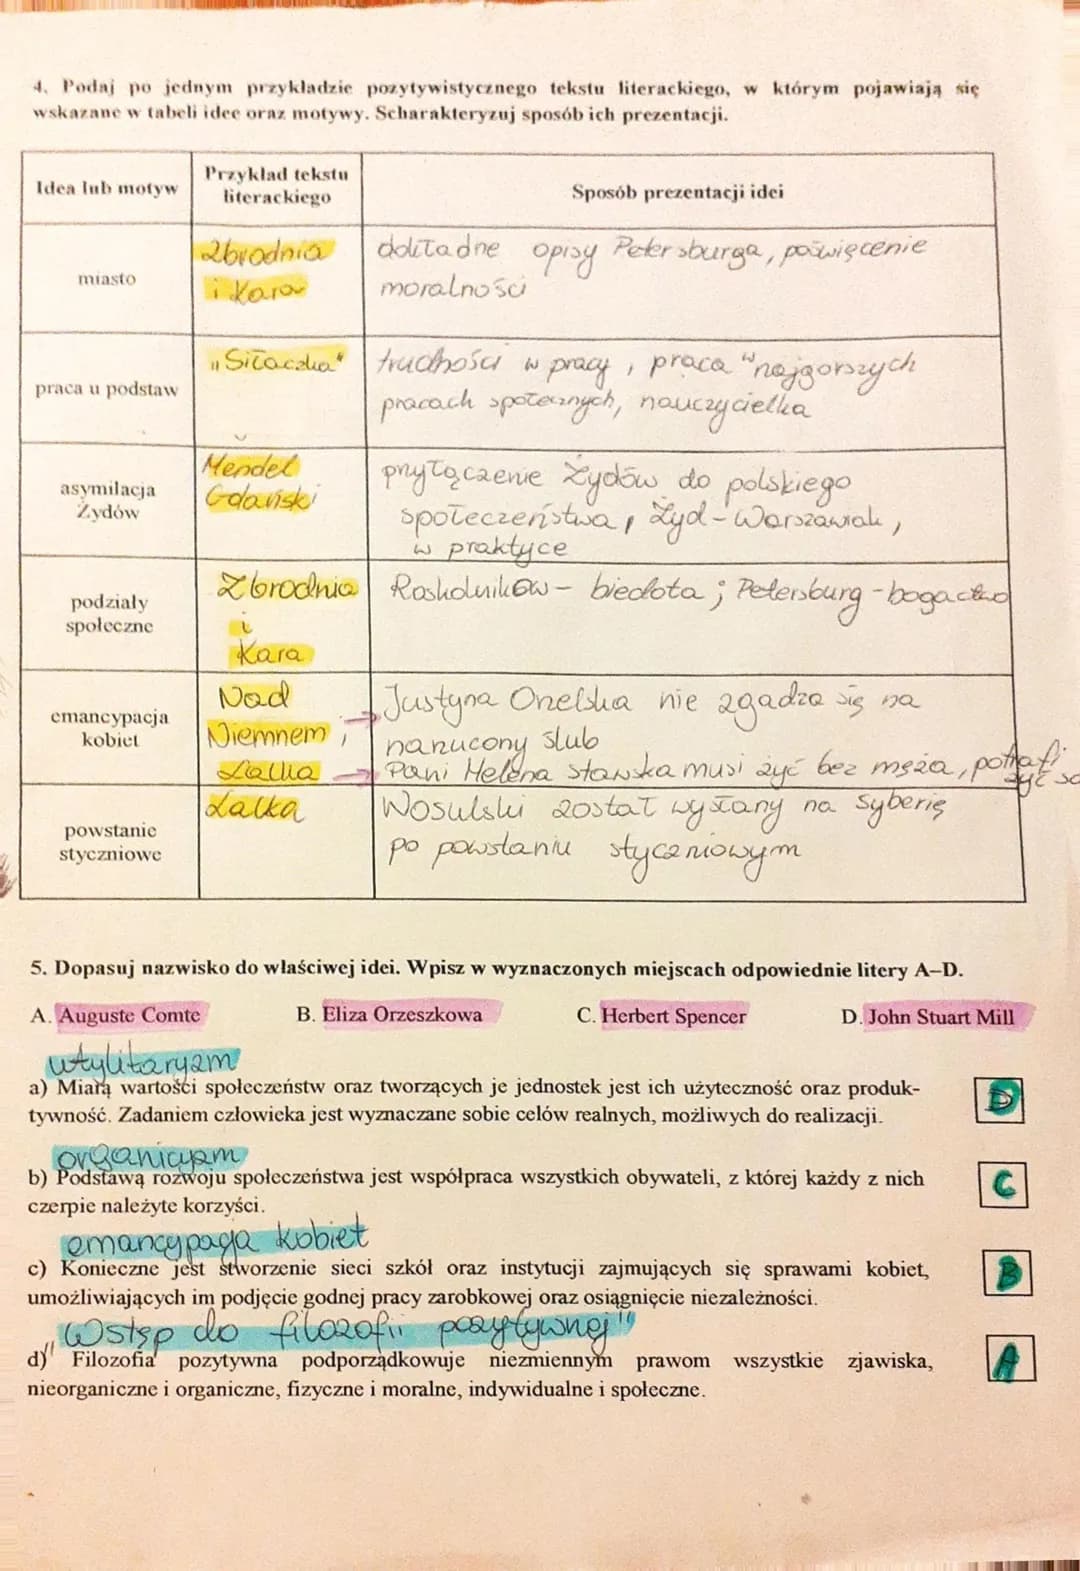 4. Podaj po jednym przykładzie pozytywistycznego tekstu literackiego, w którym pojawiają się
wskazane w tabeli idee oraz motywy. Scharakteryzuj sposób ich prezentacji.
Idea lub motyw
Przykład tekstu
literackiego
Sposób prezentacji idei
miasto
Zbrodnia
i Kara
dokładne opisy Petersburga, poświęcenie
moralności
praca u podstaw
"Siłaczka"
trudności w pracy, praca "w najgorszych
pracach społecznych, nauczycielka
asymilacja
Żydów
Mendel
Gdański
przyłączenie Żydów do polskiego
społeczeństwa, Żyd-Warszawiak,
w praktyce
podziały
społeczne
Zbrodnia
i
Kara
Raskolnikow - biedota; Petersburg - bogactwo
emancypacja
kobiet
Nad
Niemnem,
Lalka
Justyna Orzelska nie zgadza się na
narzucony ślub
Pani Helena Stawska musi żyć bez męża, potrafi
żyć
powstanie
styczniowe
Lalka
Wosulski został wysłany na Syberię
po powstaniu styczniowym
5. Dopasuj nazwisko do właściwej idei. Wpisz w wyznaczonych miejscach odpowiednie litery A–D.
A. Auguste Comte B. Eliza Orzeszkowa C. Herbert Spencer D. John Stuart Mill
utylitaryzm
a) Miarą wartości społeczeństw oraz tworzących je jednostek jest ich użyteczność oraz produk-
tywność. Zadaniem człowieka jest wyznaczane sobie celów realnych, możliwych do realizacji.
D
organicyzm
b) Podstawą rozwoju społeczeństwa jest współpraca wszystkich obywateli, z której każdy z nich
czerpie należyte korzyści.
C
emancypacja kobiet
c) Konieczne jest stworzenie sieci szkół oraz instytucji zajmujących się sprawami kobiet,
umożliwiających im podjęcie godnej pracy zarobkowej oraz osiągnięcie niezależności.
B
"Wstęp do filozofii pozytywnej"
d) Filozofia pozytywna podporządkowuje niezmiennym prawom wszystkie zjawiska,
nieorganiczne i organiczne, fizyczne i moralne, indywidualne i społeczne.
A